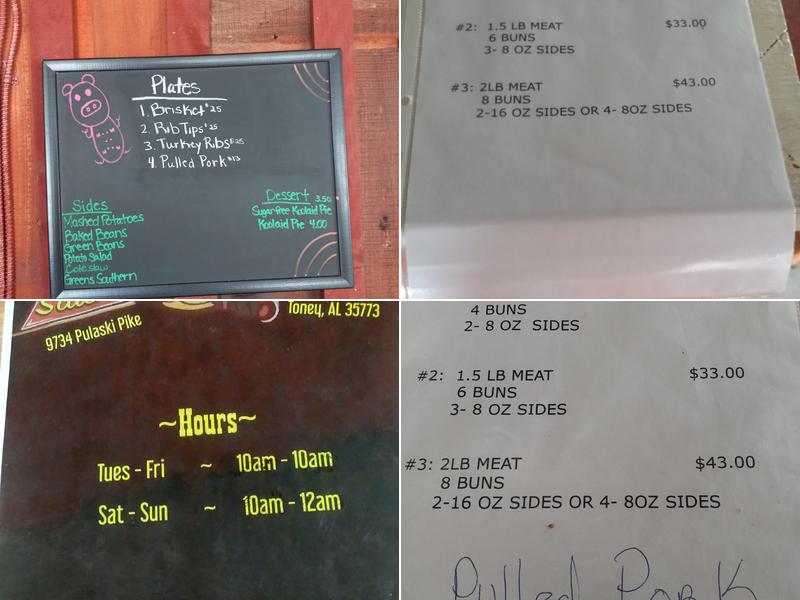 Plates
1. Brisket $25
2. Rib Tips $25
3. Turkey Ribs $25
4. Pulled Pork $13
Sides
Mashed Potatoes
Baked Beans
Green Beans
Potato Salad
Coleslaw
Greens Southern
Dessert 3.50
Sugarfree Koolaid Pie
Koolaid Pie 4.00
#2: 1.5 LB MEAT $33.00
6 BUNS
3- 8 OZ SIDES
#3: 2LB MEAT $43.00
8 BUNS
2-16 OZ SIDES OR 4- 8OZ SIDES
9734 Pulaski Pike
Toney, AL 35773
~Hours~
Tues - Fri ~ 10am - 10am
Sat - Sun ~ 10am - 12am
4 BUNS
2- 8 OZ SIDES
#2: 1.5 LB MEAT $33.00
6 BUNS
3- 8 OZ SIDES
#3: 2LB MEAT $43.00
8 BUNS
2-16 OZ SIDES OR 4- 8OZ SIDES
Pulled Pork